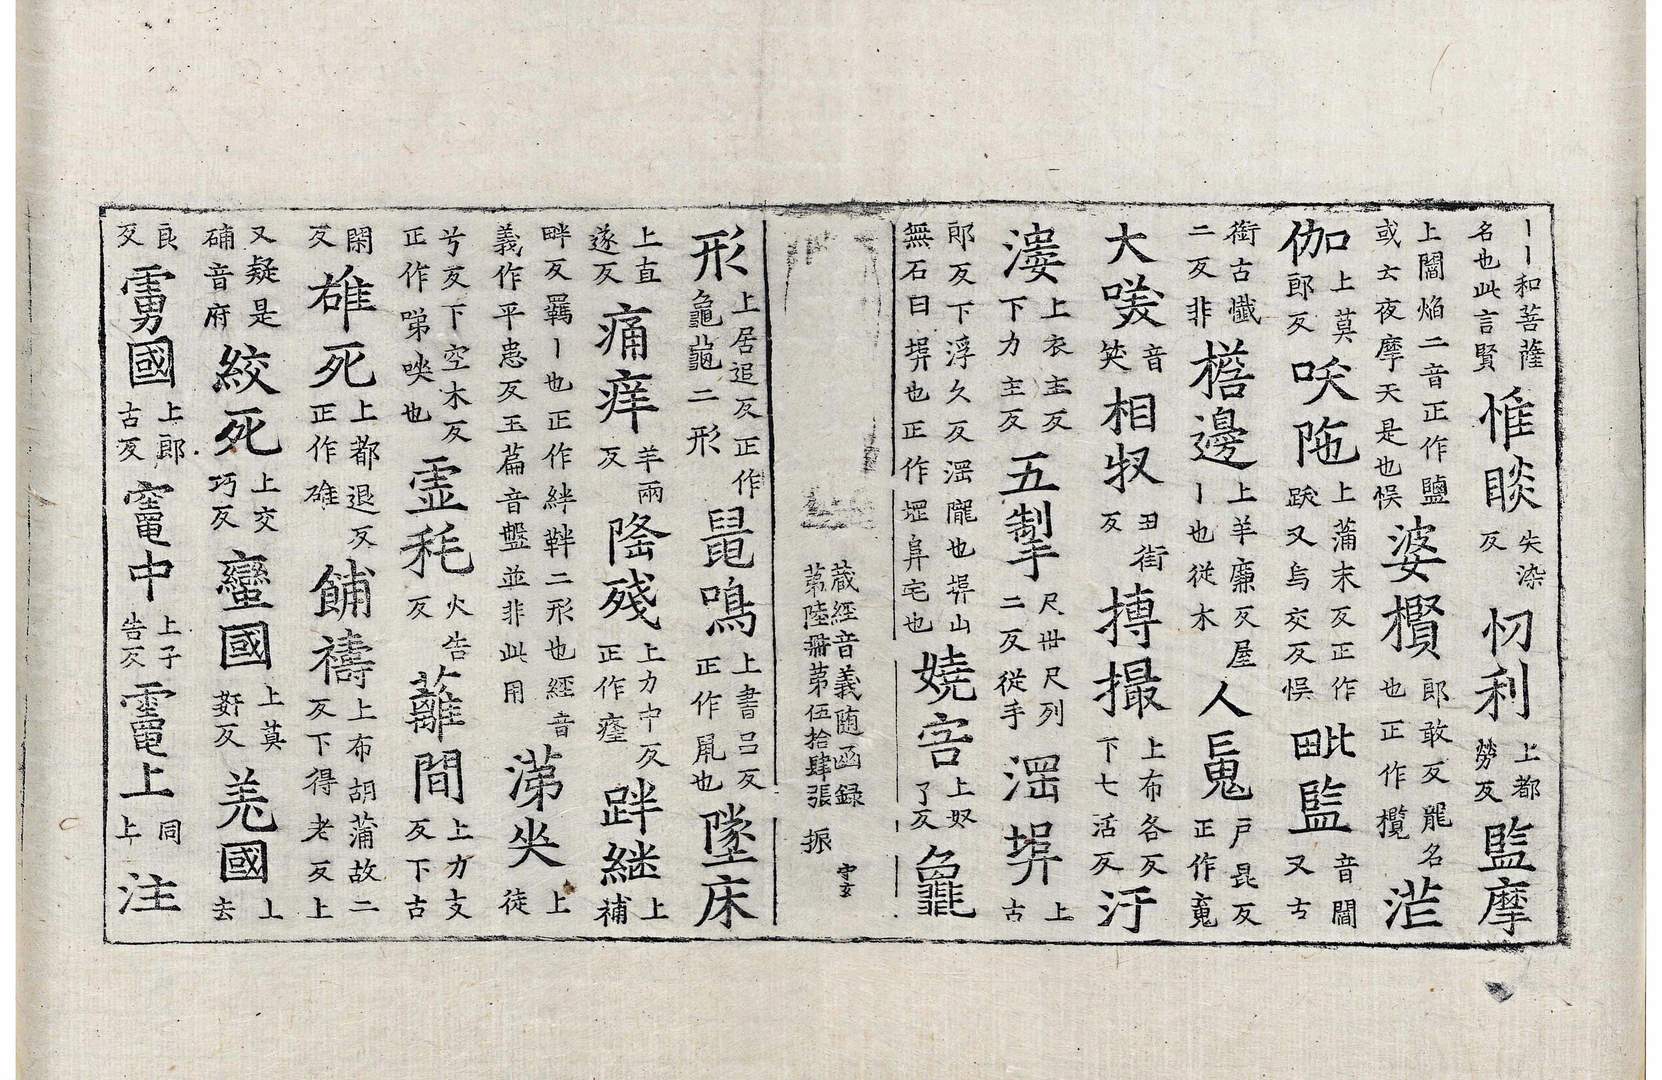 丨丨和菩薩名也此言賢惟睒失染反忉利上都勞反監摩
上閻焰二音正作鹽或云夜摩天是也悮婆檟郎敢反龍名也正作欖茫
伽上莫郎反㕹陁上蒲末反正作跋又烏交反悮毗監音閻又古
銜古懺二反非檐邊上羊廉反屋丨也從木人䰟戶昆反正作䰟
大𥬇音笑相扠丑街反搏撮上布各反下七活反汙
漊上衣主反下力主反五掣尺世尺列二反從手𣹟塀上古
郎反下浮久反𣹟隴也塀山無石曰塀也正作堽阜宅也嬈害上奴了反龜
藏經音義随函録
第陸冊第伍拾肆張 振 守玄
形上居追反正作龜龜二形鼠鳴上書呂反正作鼠也墜床
上直遂反痛痒羊兩反隆殘上力中反正作癃跘継上補
畔反羈丨也正作絆靽二形也經音義作平患反玉篇音盤並非此用渧哭上徒
兮反下空木反正作啼哭也霊秏火告反蘺間上力支反下古
閑反䧺死上都退反正作碓餔禱上布胡蒲故二反下得老反上
又疑是䩉音府絞死上交巧反蠻國上莫姧反羌國上去
良反虜國上郎古反竈中上子告反竈上同上注